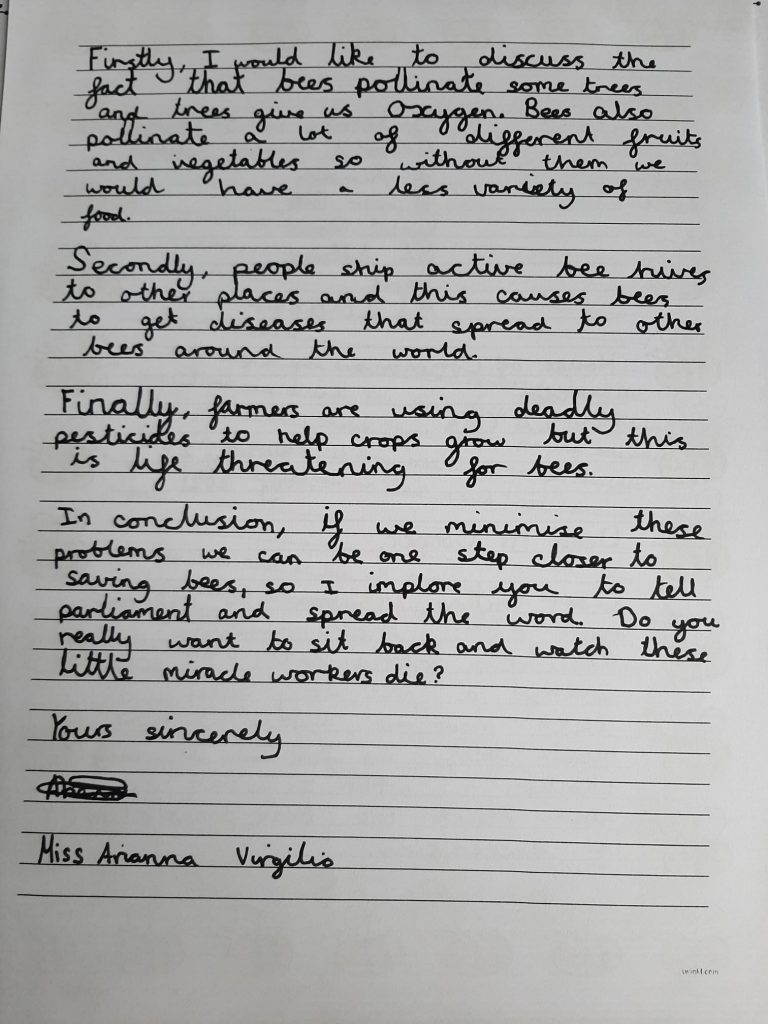 Firstly, I would like to discuss the
fact that bees pollinate some trees
and trees give us oxygen. Bees also
pollinate a lot of different fruits
and vegetables so without them we
would have a less variety of
food.
Secondly, people ship active bee hives
to other places and this causes bees
to get diseases that spread to other
bees around the world.
Finally, farmers are using deadly
pesticides to help crops grow but this
is life threatening for bees.
In conclusion, if we minimise these
problems we can be one step closer to
saving bees, so I implore you to tell
parliament and spread the word. Do you
really want to sit back and watch these
little miracle workers die?
Yours sincerely
Miss Arianna Virgilio
twinkl.com